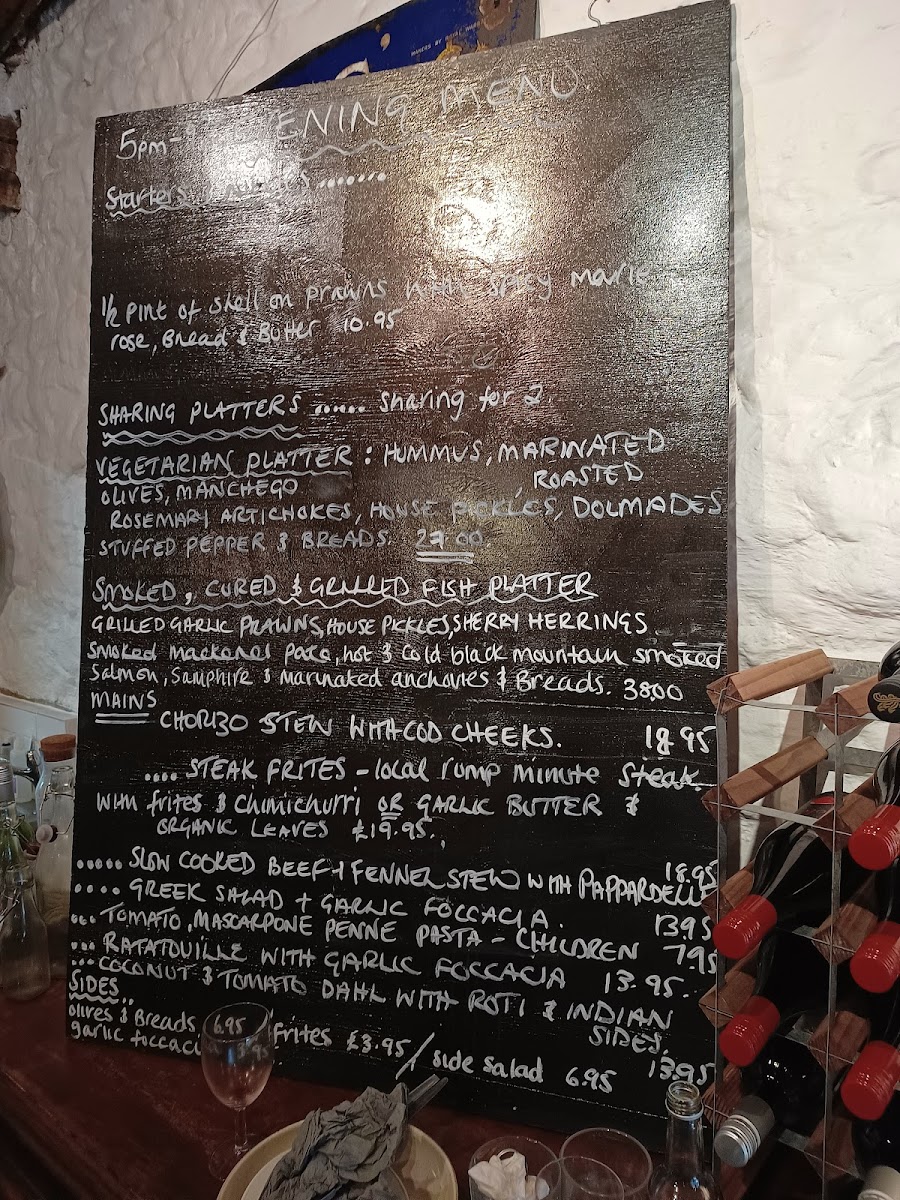 5pm-
EVENING MENU
Starters
1/2 Pint of shell on prawns with spicy marie
rose, Bread & Butter 10.95
SHARING PLATTERS ...... sharing for 2.
VEGETARIAN PLATTER : HUMMUS, MARINATED
OLIVES, MANCHEGO, ROASTED
ROSEMARY ARTICHOKES, HOUSE PICKLES, DOLMADES
STUFFED PEPPER & BREADS. 27.00.
SMOKED, CURED & GRILLED FISH PLATTER
GRILLED GARLIC PRAWNS, HOUSE PICKLES, SHERRY HERRINGS
Smoked mackerel pate, hot & cold black mountain smoked
Salmon, Samphire & Marinated anchovies & Breads. 38.00
MAINS
CHORIZO STEW WITH COD CHEEKS. 18.95
.... STEAK FRITES - local rump minute steak.
WITH frites & Chimichurri OR GARLIC BUTTER &
ORGANIC LEAVES £19.95.
..... SLOW COOKED BEEF + FENNEL STEW WITH PAPPARDELLE 18.95
.... GREEK SALAD + GARLIC FOCCACIA. 13.95
... TOMATO, MASCARPONE PENNE PASTA - CHILDREN 7.95
... RATATOUILLE WITH GARLIC FOCCACIA 13.95.
... COCONUT & TOMATO DAHL WITH ROTI & INDIAN
SIDES. 13.95
SIDES..
olives & Breads 6.95 / Frites £3.95 / side salad 6.95
garlic foccaci